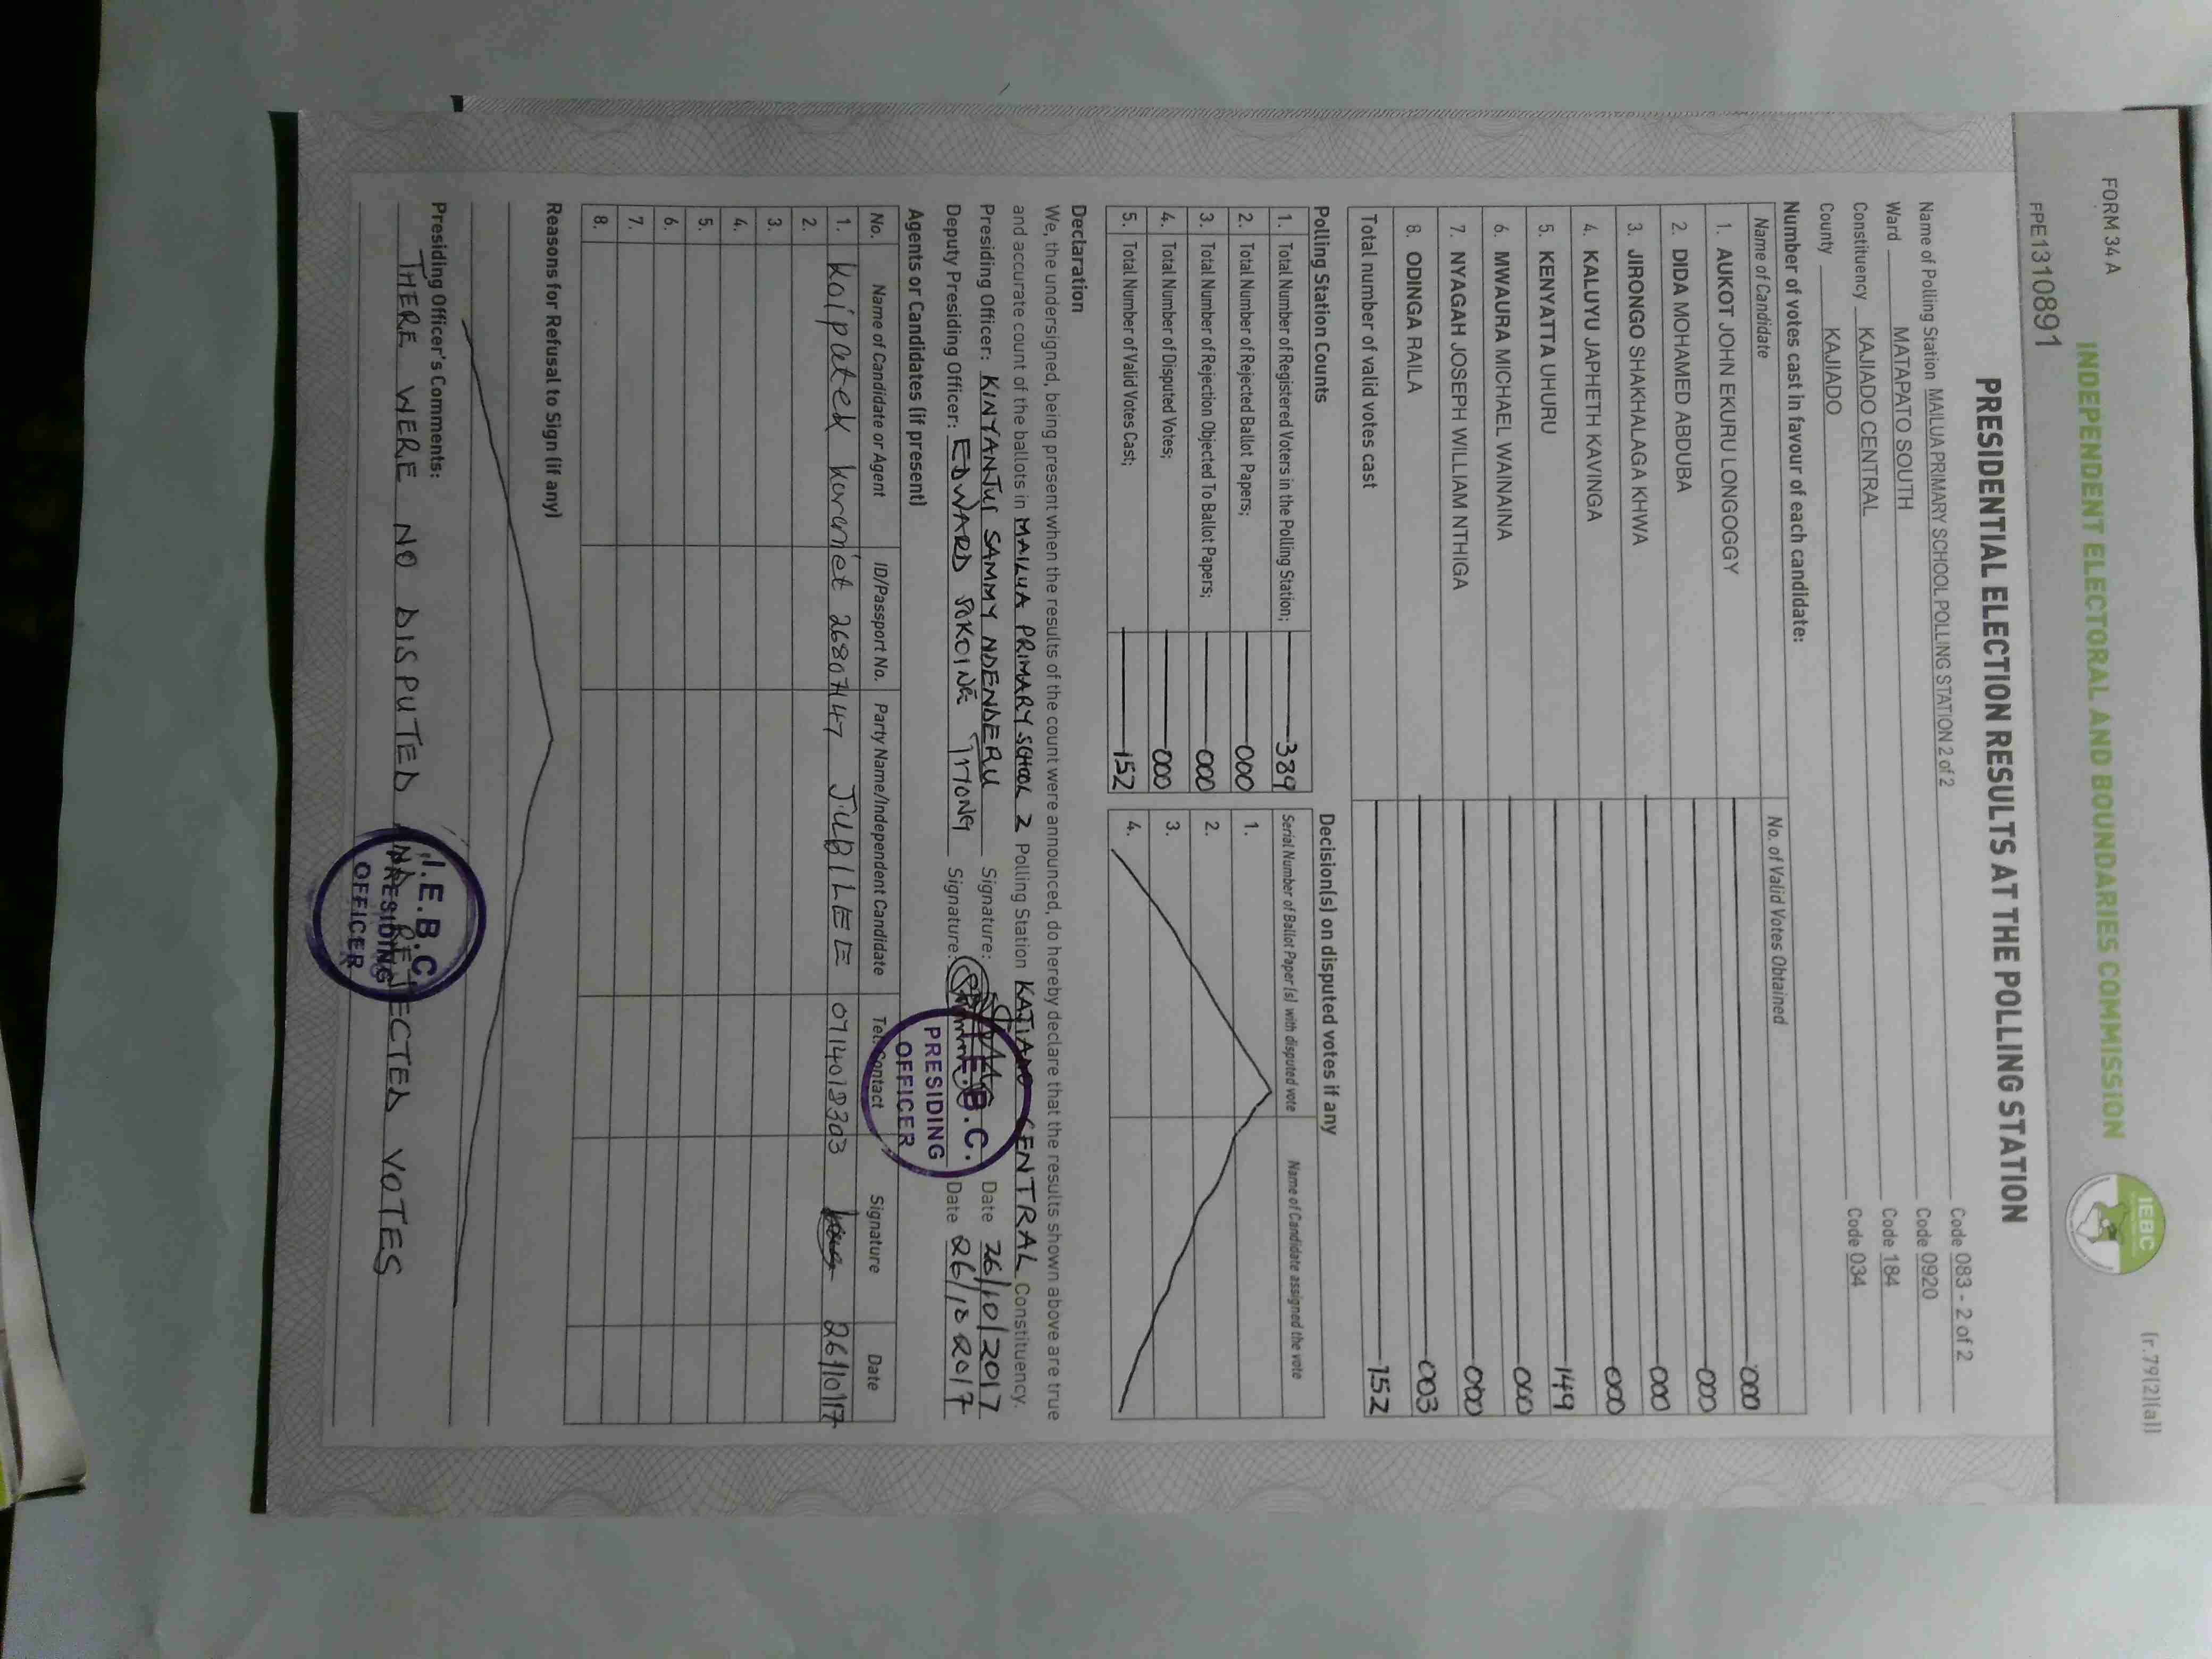 FORM 34 A
(r.79(2)(a))
INDEPENDENT ELECTORAL AND BOUNDARIES COMMISSION
IEBC
FPE1310891
PRESIDENTIAL ELECTION RESULTS AT THE POLLING STATION
Name of Polling Station MAILUA PRIMARY SCHOOL POLLING STATION 2 of 2 Code 083 - 2 of 2
Ward MATAPATO SOUTH Code 0920
Constituency KAJIADO CENTRAL Code 184
County KAJIADO Code 034
Number of votes cast in favour of each candidate:
Name of Candidate No. of Valid Votes Obtained
1. AUKOT JOHN EKURU LONGOGGY 000
2. DIDA MOHAMED ABDUBA 000
3. JIRONGO SHAKHALAGA KHWA 000
4. KALUYU JAPHETH KAVINGA 000
5. KENYATTA UHURU 149
6. MWAURA MICHAEL WAINAINA 000
7. NYAGAH JOSEPH WILLIAM NTHIGA 000
8. ODINGA RAILA 003
Total number of valid votes cast 152
Polling Station Counts
1. Total Number of Registered Voters in the Polling Station; 389
2. Total Number of Rejected Ballot Papers; 000
3. Total Number of Rejection Objected To Ballot Papers; 000
4. Total Number of Disputed Votes; 000
5. Total Number of Valid Votes Cast; 152
Decision(s) on disputed votes if any
Serial Number of Ballot Paper (s) with disputed vote Name of Candidate assigned the vote
1.
2.
3.
4.
Declaration
We, the undersigned, being present when the results of the count were announced, do hereby declare that the results shown above are true
and accurate count of the ballots in MAILUA PRIMARY SCHOOL 2 Polling Station KAJIADO CENTRAL Constituency.
Presiding Officer: KINYANJUI SAMMY NDENDERU Signature: Date 26/10/2017
Deputy Presiding Officer: EDWARD SOKOINE Signature: Date 26/10 2017
I.E.B.C.
PRESIDING
OFFICER
Agents or Candidates (if present)
No. Name of Candidate or Agent ID/Passport No. Party Name/Independent Candidate Tel. Contact Signature Date
1. Koipatek 26807147 JUBILEE 26/10/17
2.
3.
4.
5.
6.
7.
8.
Reasons for Refusal to Sign (if any)
Presiding Officer's Comments:
THERE WERE NO DISPUTED AND REJECTED VOTES
I.E.B.C.
PRESIDING
OFFICER